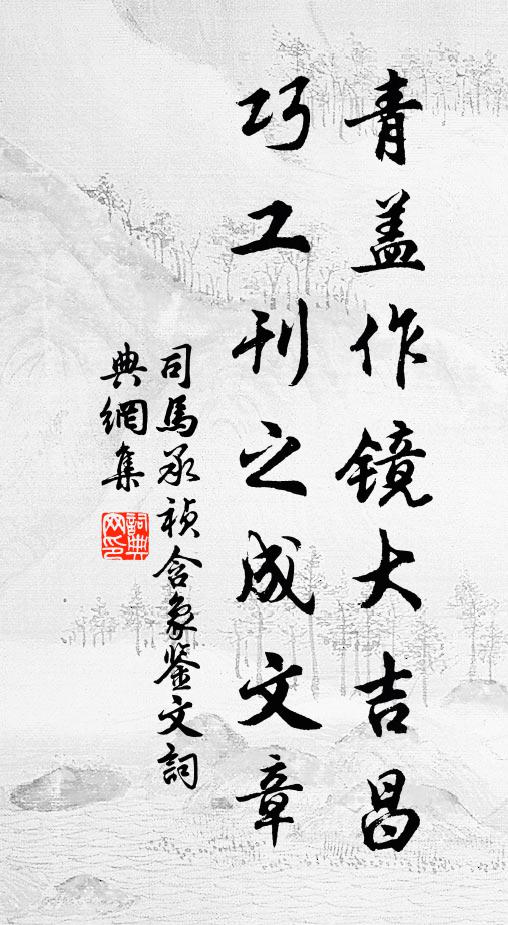 青盖作镜大吉昌
巧工刊之成文章
司馬承禎含象鉴文詞
典網集
詞典
网印